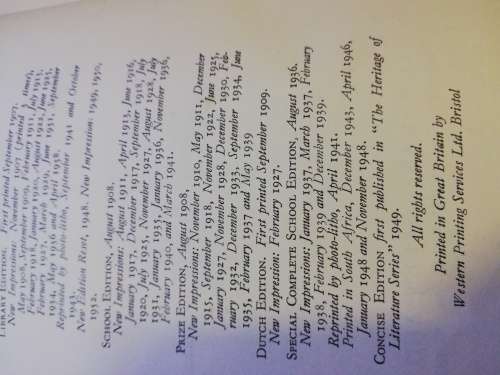 LIBRARY EDITION. First printed September 1907.
New Impressions: November 1907 (printed
May 1908, September
February 1918, January 1920, August 1922, June 1925,
1934, May 1936 and April 1938.
Reprinted by photo-litho, September 1941 and October
New Edition Reset, 1948. New Impression: 1949, 1950,
1952.
SCHOOL EDITION, August 1908.
New Impressions: August 1911, April 1913, June 1916,
January 1917, December 1917, September 1918, July
1920, July 1925, November 1927, August 1928, July
1931, January 1935, January 1936, November 1936,
February 1940, and March 1941.
PRIZE EDITION, August 1908,
New Impressions: November 1910, May 1911, December
1915, September 1918, November 1922, June 1925,
January 1927, November 1928, December 1930, Feb-
ruary 1932, December 1933, September 1934, June
1935, February 1937 and May 1939
DUTCH EDITION. First printed September 1909.
New Impression: February 1927.
SPECIAL COMPLETE SCHOOL EDITION, August 1936.
New Impressions: January 1937, March 1937, February
1938, February 1939 and December 1939.
Reprinted by photo-litho, April 1941.
Printed in South Africa, December 1943, April 1946,
January 1948 and November 1948.
CONCISE EDITION first published in "The Heritage of
Literature Series" 1949.
All rights reserved.
Printed in Great Britain by
Western Printing Services Ltd. Bristol